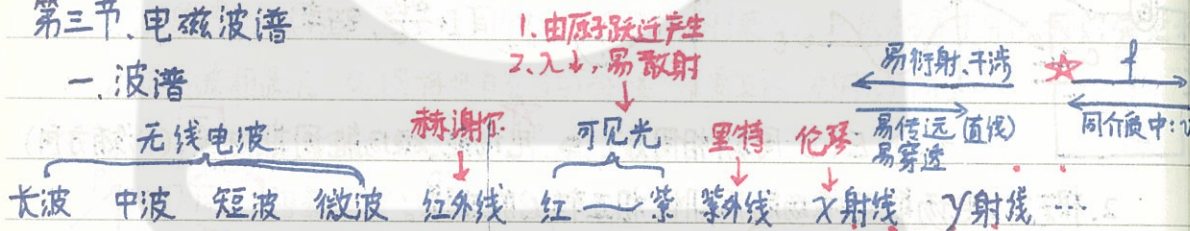 第三节、电磁波谱
1.由原子跃迁产生
2、入↓,易散射
一.波谱
易衍射、干涉 ☆ f
易传远(直线)
易穿透
同介质中:v
无线电波 赫谢尔 可见光 里特 伦琴
长波 中波 短波 微波 红外线 红 — 紫 紫外线 X射线 γ射线 …